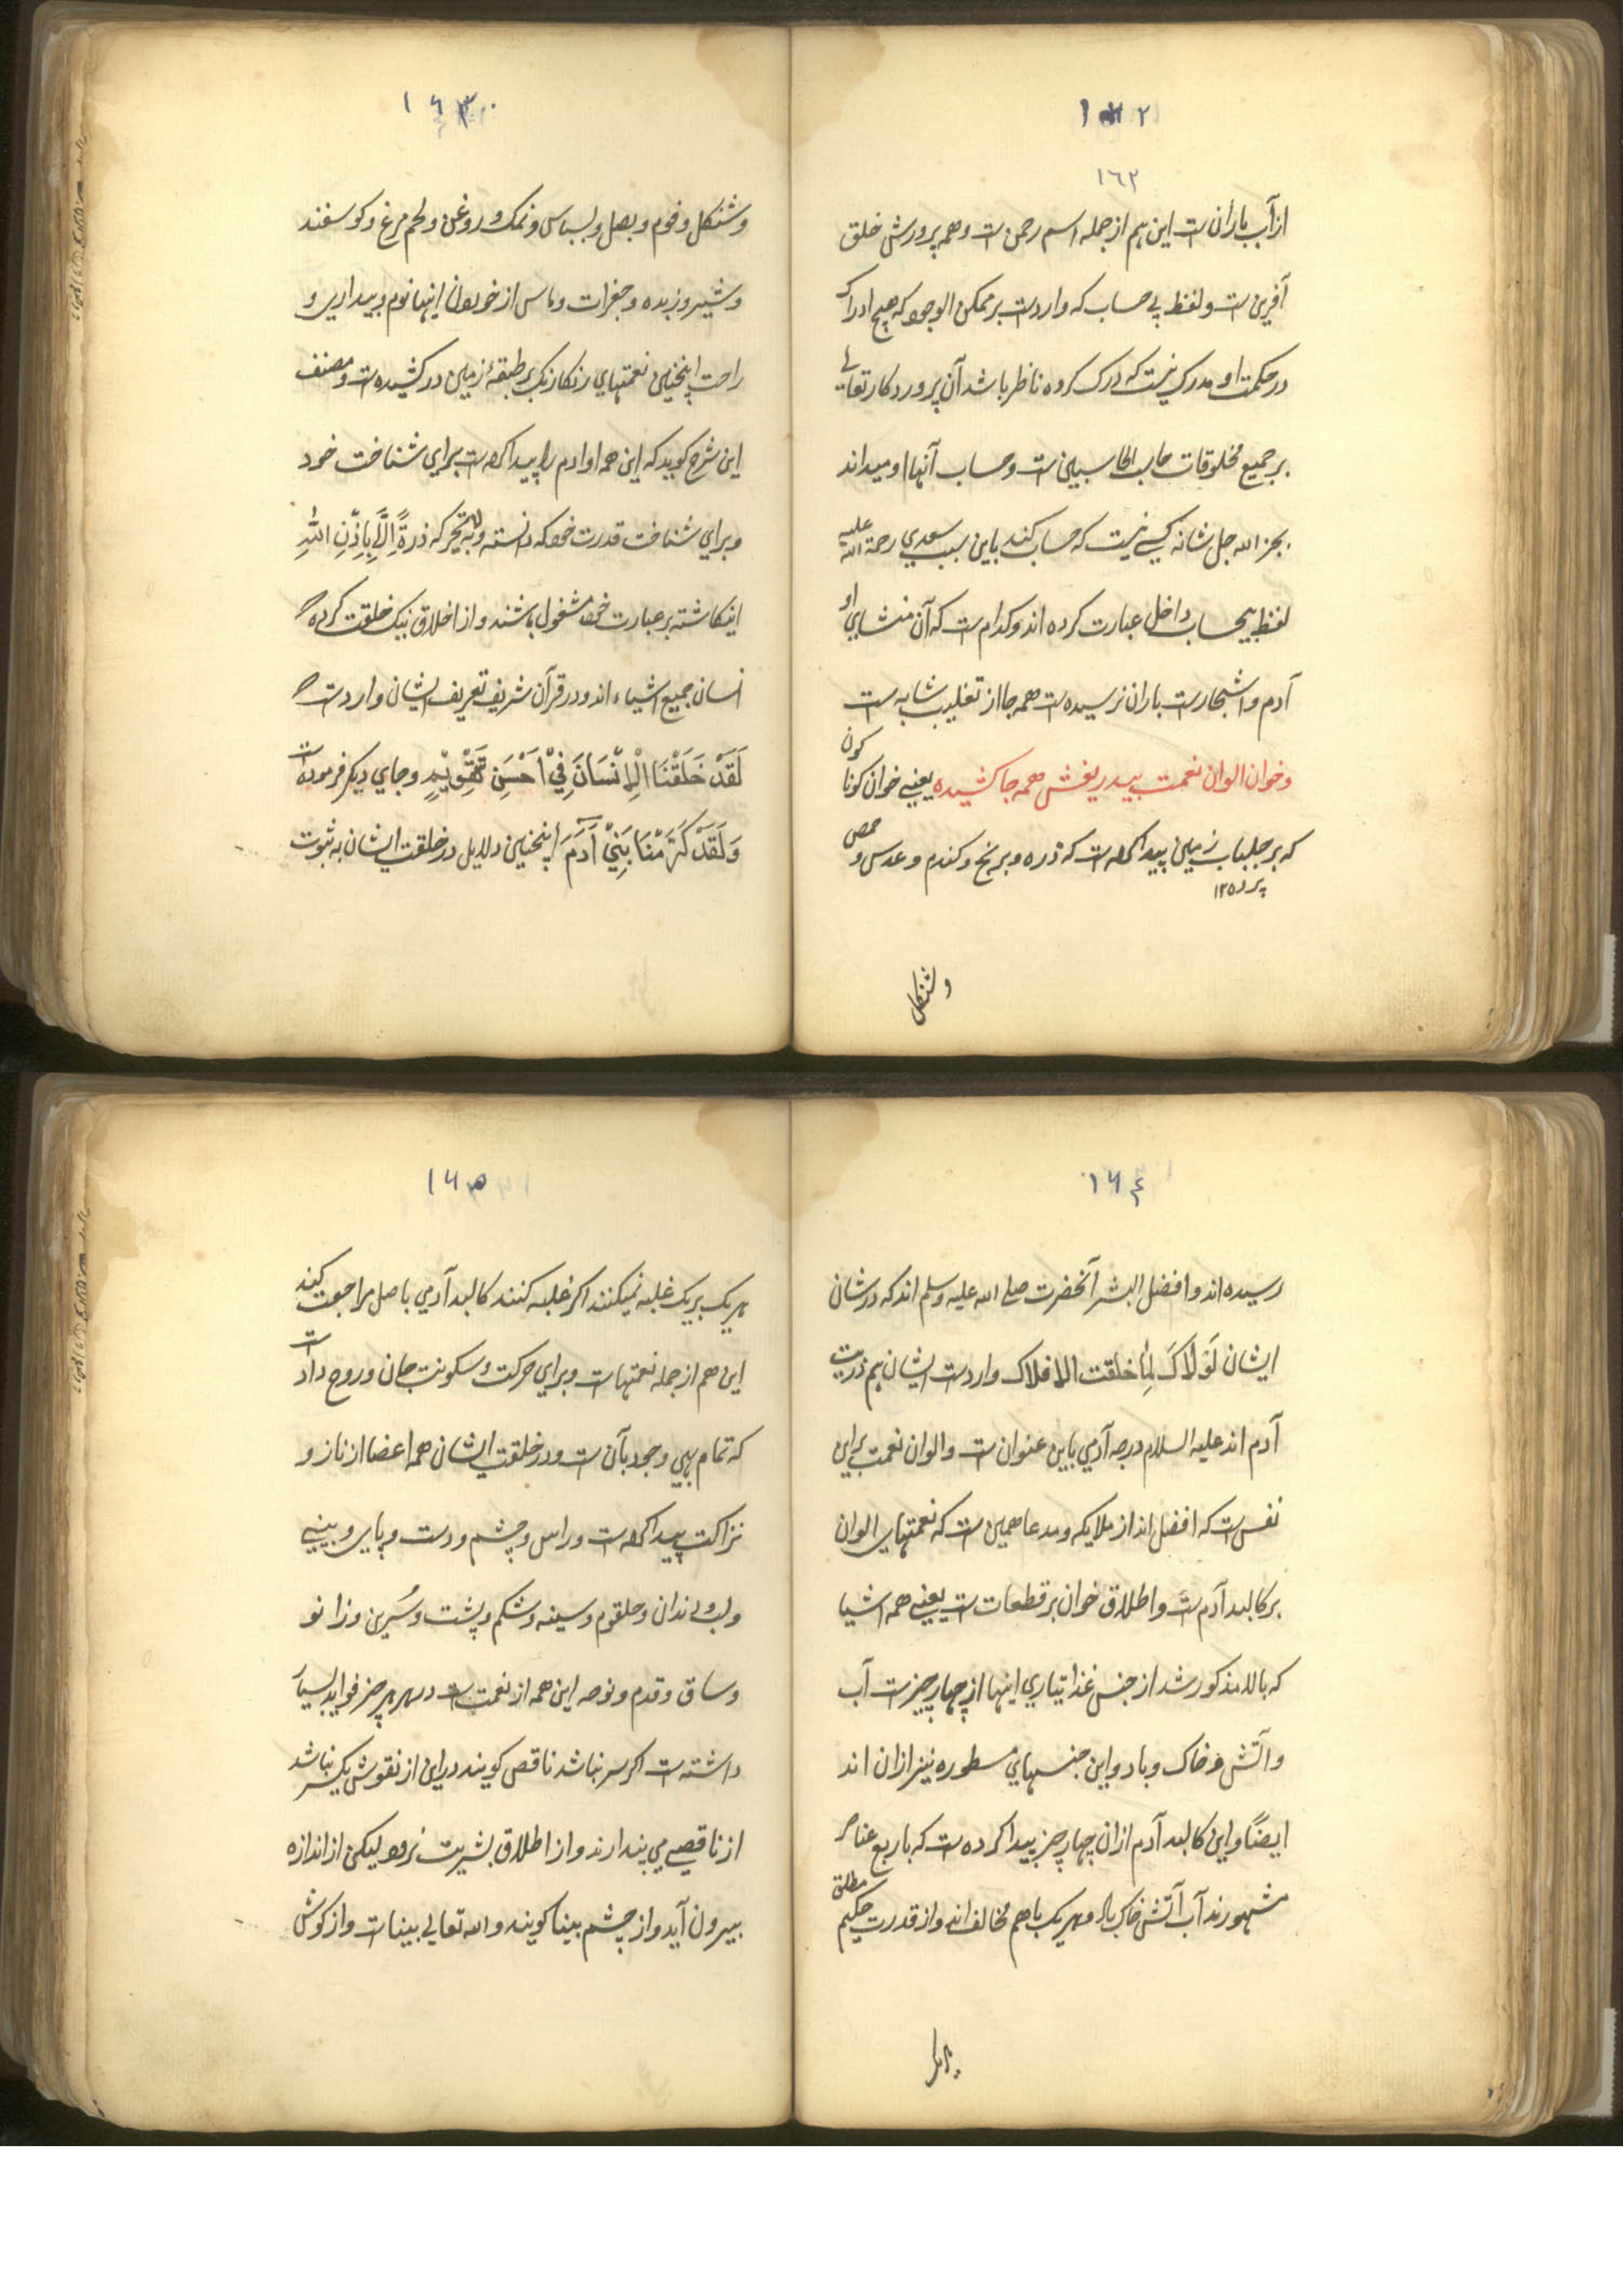 ١٦٢
١٦٢
از آب بارانست این هم از جمله اسم رحمن ست و همه پرورش خلق
آفرین ست و لفظ بی حساب که واردست بر ممکن الوجود که هیچ ادراک
در حکمت او مدرک نیست که درک کرده ناظر باشد آن پروردکار تعالی
بر جمیع مخلوقات حاسب الحاسبین ست و حساب آنها او میداند
بجز الله جل شانه کسی نیست که حساب کند باین سبب سعدی رحمة الله علیه
لفظ بیحساب داخل عبارت کرده اند و کدام ست که آن منشای او
آدم و اشجارست باران نرسیده ست همه جا از تغلیب شابه ست
و خوان الوان نعمت بیدریغش همه جا کشیده یعنی خوان کونا کون
که بر جلباب زمین پیدا کرده ست که ذره و برنج و کندم و عدس و حمص
وشنکل
١٦٣
وشنکل و فوم و بصل و بسباس و نمک و روغن و لحم مرغ و کوسفند
و شیر و زبده و جغرات و ماس از خوردن اینها نوم و بیداری و
راحت اینچنین نعمتهای رنکارنک بر طبقهٔ زمین در کشیده ست و مصنف
این شرح کوید که این همه او ادم را پیدا کرده ست برای شناخت خود
و برای شناخت قدرت خود که دانسته و لا تحرکه ذرةً اِلَّا بِاِذْنِ اللهِ
انکاشته بر عبارت خود مشغول باشند و از اخلاق نیک خلقت کرده
انسان جمیع اشیاء اند و در قرآن شریف تعریف ایشان واردست که
لَقَدْ خَلَقْنَا الْاِنْسَانَ فِيْ اَحْسَنِ تَقْوِيْمٍ و جای دیکر فرموده ست
وَلَقَدْ كَرَّمْنَا بَنِيْ آدَمَ اینچنین دلایل در خلقت ایشان به ثبوت
١٦٤
رسیده اند و افضل البشر آنحضرت صلی الله علیه وسلم اند که در شان
ایشان لَوْلَاكَ لَمَا خلقت الافلاک واردست ایشان هم ذریت
آدم اند علیه السلام درجه آدمی باین عنوان ست و الوان نعمت برای
نفس ست که افضل اند از ملایکه و مدعا همین ست که نعمتهای الوان
بر کالبد آدم ست و اطلاق خوان بر قطعات ست یعنی همه اشیا
که بالا مذکور شد از جنس غذا تیاری اینها از چهار چیزست آب
و آتش و خاک و باد و این جنسهای مسطوره نیز ازان اند
ایضًا و این کالبد آدم ازان چهار چیز پیدا کرده ست که باربع عناصر
مشهورند آب آتش خاک باد و هریک با هم مخالف اند و از قدرت حکیم مطلق
هریک
١٦٥
هریک بریک غلبه نمیکنند اکر غلبه کنند کالبد آدمی باصل مراجعت کیند
این هم از جمله نعمتهاست و برای حرکت و سکونت جان و روح داد ست
که تمام بهی وجود بآن ست و در خلقت ایشان همه اعضا از ناز و
نزاکت پیدا کرده ست و راس و چشم و دست و پای و بینی
و لب و دندان و حلقوم و سینه و شکم و پشت و سُرین و زانو
و ساق و قدم این همه از نعمت ست در هر چیز فواید بسیار
داشته ست اکر سر نباشد ناقص کویند دراین از نقوش یکسر نباشد
از ناقصی می پندارند و از اطلاق بشریت نرود لیکن از اندازه
بیرون آید و از چشم بینا کویند و الله تعالی بیناست و از کوش